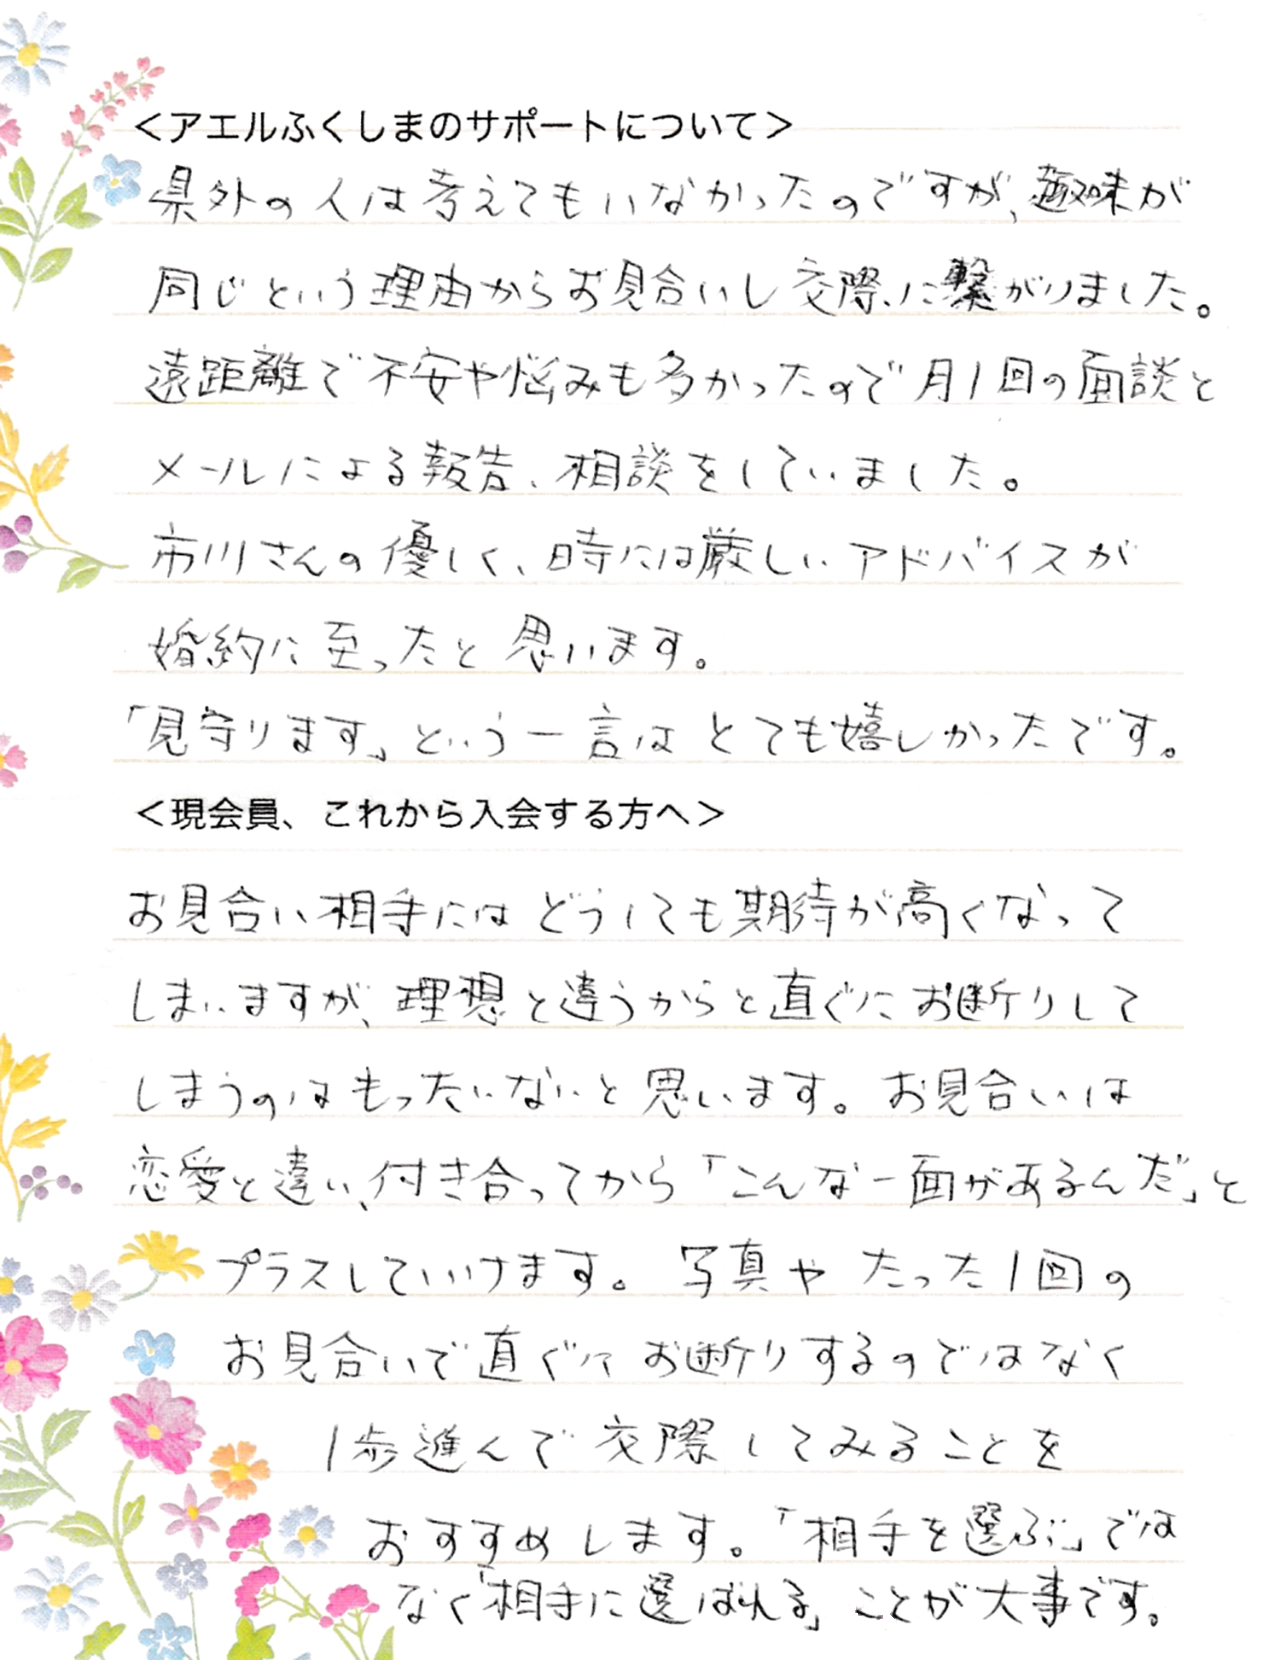 ＜アエルふくしまのサポートについて＞
県外の人は考えてもいなかったのですが、趣味が
同じという理由からお見合いし交際に繋がりました。
遠距離で不安や悩みも多かったので月1回の面談と
メールによる報告、相談をしていました。
市川さんの優しく、時には厳しいアドバイスが
婚約に至ったと思います。
「見守ります」という一言はとても嬉しかったです。
＜現会員、これから入会する方へ＞
お見合い相手にはどうしても期待が高くなって
しまいますが、理想と違うからと直ぐにお断りして
しまうのはもったいないと思います。お見合いは
恋愛と違い、付き合ってから「こんな一面があるんだ」と
プラスしていけます。写真やたった1回の
お見合いで直ぐにお断りするのではなく
1歩進んで交際してみることを
おすすめします。「相手を選ぶ」では
なく「相手に選ばれる」ことが大事です。